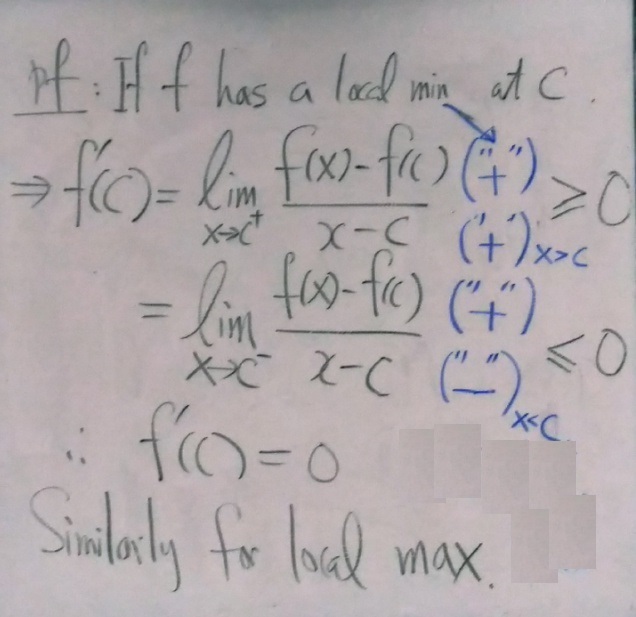 pf: If f has a local min at c.
⇒ f'(c) = lim x→c⁺ f(x)-f(c) / x-c ("+") / ("+") x>c ≥ 0
= lim x→c⁻ f(x)-f(c) / x-c ("+") / ("−") x<c ≤ 0
∴ f'(c) = 0
Similarly for local max.